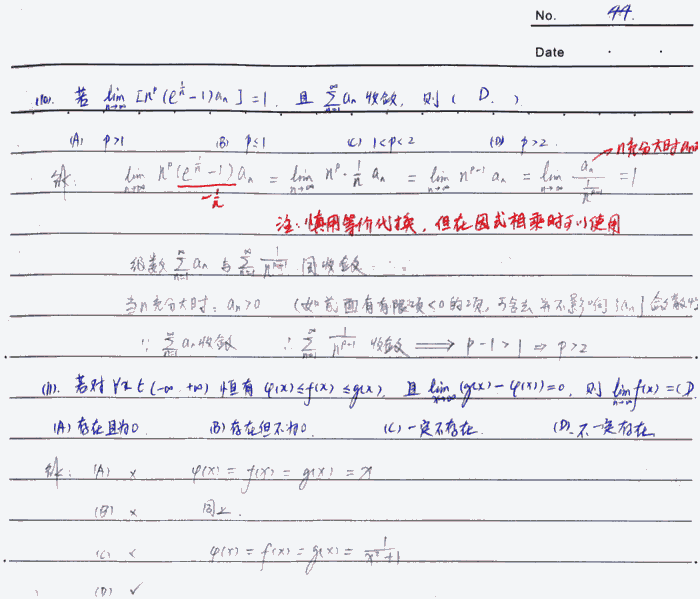 No. 44.
Date . .
(10). 若 lim n→∞ [n^p (e^{1/n} -1) a_n ] = 1, 且 ∑_{n=1}^∞ a_n 收敛, 则 ( D. )
(A) p>1 (B) p≤1 (C) 1<p<2 (D) p>2.
n充分大时 a_n>0
解: lim n→∞ n^p (e^{1/n} -1) a_n = lim n→∞ n^p · 1/n a_n = lim n→∞ n^{p-1} a_n = lim n→∞ a_n / (1/n^{p-1}) = 1
~ 1/n
注: 慎用等价代换, 但在因式相乘时可以使用
级数 ∑_{n=1}^∞ a_n 与 ∑_{n=1}^∞ 1/n^{p-1} 同收敛
当n充分大时, a_n>0 (如前面有有限项<0的项, 可舍去并不影响{a_n}敛散性
∵ ∑_{n=1}^∞ a_n 收敛 ∴ ∑_{n=1}^∞ 1/n^{p-1} 收敛 ⟹ p-1>1 ⇒ p>2
(11). 若对 ∀x∈(-∞ +∞) 恒有 φ(x)≤f(x)≤g(x), 且 lim x→∞ (g(x)-φ(x))=0, 则 lim n→∞ f(x) = (D.
(A) 存在且为0 (B) 存在但不为0. (C) 一定不存在. (D). 不一定存在
解: (A) × φ(x) = f(x) = g(x) = x
(B) × 同上.
(C) × φ(x) = f(x) = g(x) = 1/(x²+1)
(D) ✓